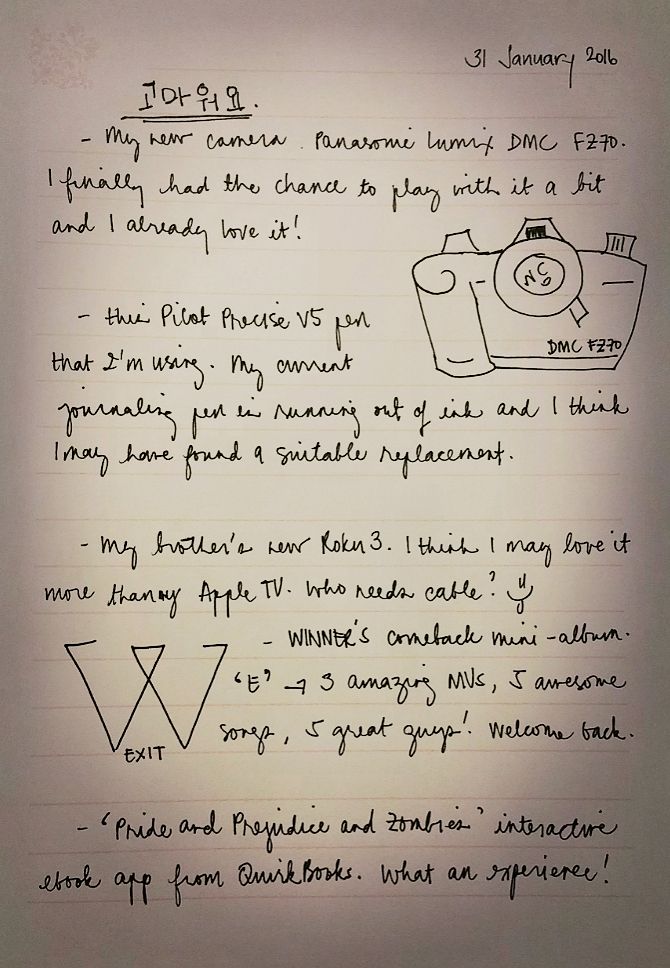 31 January 2016
고마워요.
- My new camera. Panasonic Lumix DMC FZ70.
I finally had the chance to play with it a bit
and I already love it!
DMC FZ70
- this Pilot Precise V5 pen
that I'm using. My current
journaling pen is running out of ink and I think
I may have found a suitable replacement.
- My brother's new Roku 3. I think I may love it
more than my Apple TV. Who needs cable?
- WINNER'S comeback mini-album.
'E' → 3 amazing MVs, 5 awesome
songs, 5 great guys! Welcome back.
EXIT
- 'Pride and Prejudice and Zombies' interactive
ebook app from QuirkBooks. What an experience!